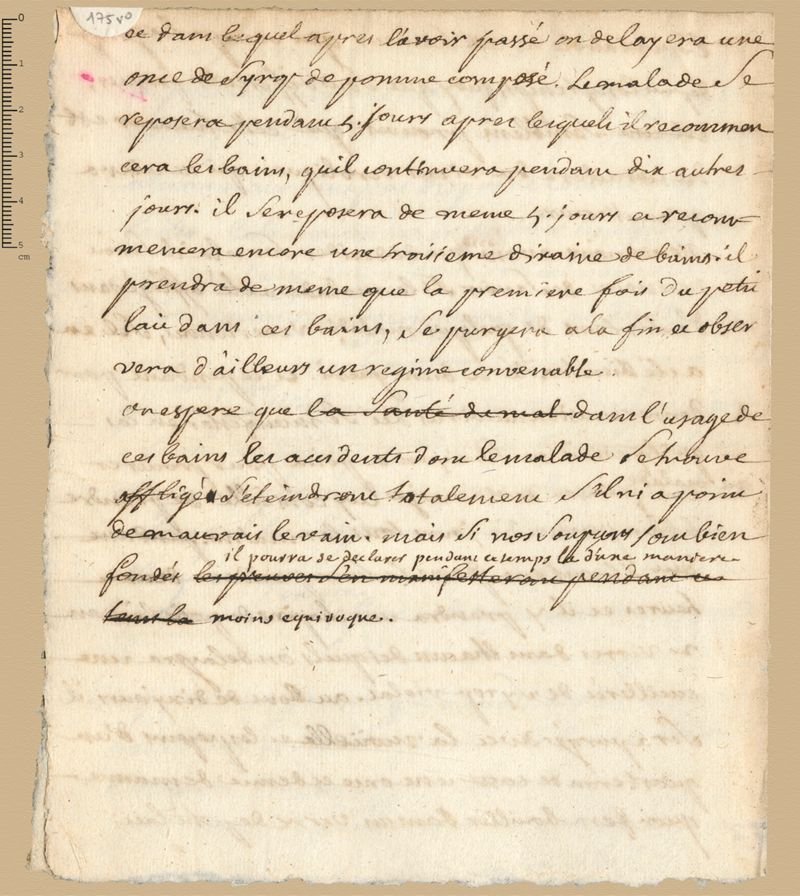 175 vo
et dans lequel apres l'avoir passé on delayera une
once de Syrop de pomme composé. Le malade Se
reposera pendant 5. jours apres lesquels il recommen
cera les bains, quil continuera pendant dix autres
jours. il Se reposera de meme 5. jours et recom-
mencera encore une troisieme dixaine de bains. il
prendra de meme que la premiere fois du petit
lait dans ces bains, Se purgera a la fin et obser
vera d'ailleurs un regime convenable.
on espere que la Santé du mal dans l'usage de
ces bains les accidents dont le malade Se trouve
affligé S'eteindront totalement S'il ni a point
de mauvais levain. mais Si nos Soupçons sont bien
il pourra se declarer pendant ce temps la d'une maniere
fondés les preuves S'en manifesteront pendant ce
tems la moins equivoque.
0
1
2
3
4
5
cm